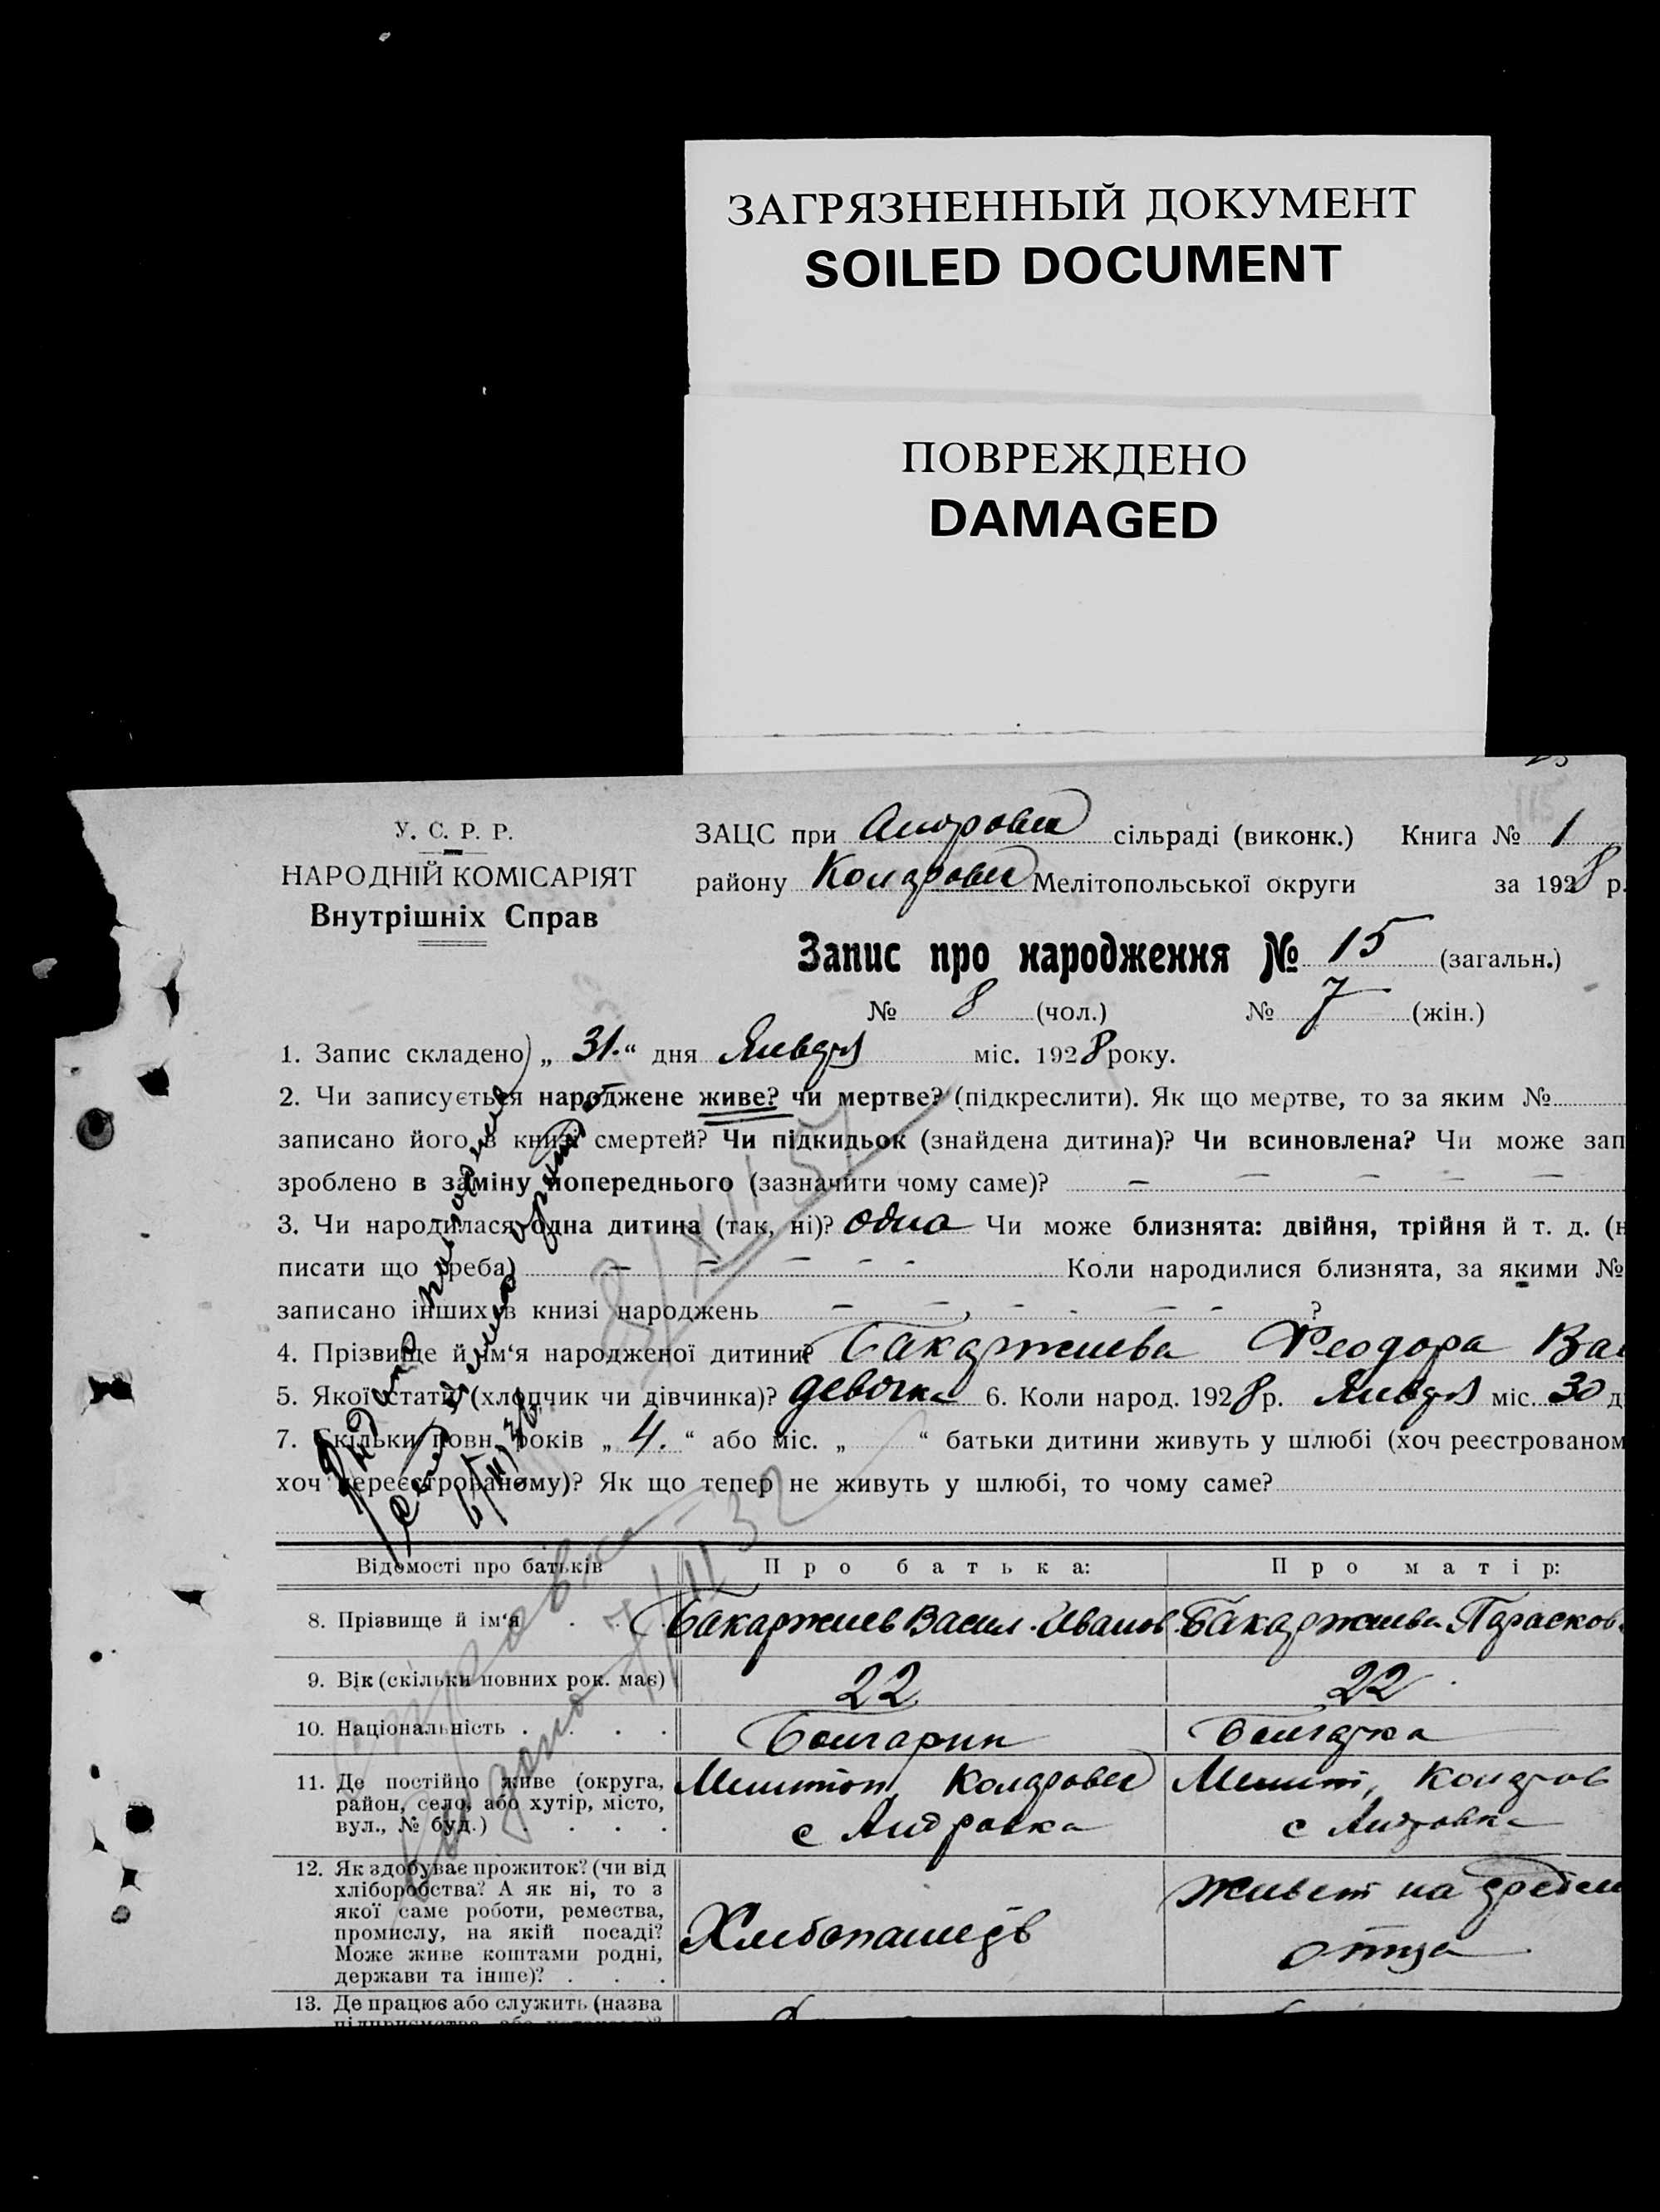 ЗАГРЯЗНЕННЫЙ ДОКУМЕНТ
SOILED DOCUMENT
ПОВРЕЖДЕНО
DAMAGED
У. С. Р. Р.
НАРОДНІЙ КОМІСАРІЯТ
Внутрішніх Справ
ЗАЦС при Андровск сільраді (виконк.) Книга № 1
району Коларовск Мелітопольської округи за 1928 р.
Запис про народження № 15 (загальн.)
№ 8 (чол.) № 7 (жін.)
1. Запис складено „ 31. “ дня Января міс. 1928 року.
2. Чи записується народжене живе? чи мертве? (підкреслити). Як що мертве, то за яким №
записано його в книзі смертей? Чи підкидьок (знайдена дитина)? Чи всиновлена? Чи може зап
зроблено в заміну попереднього (зазначити чому саме)? — — — — —
3. Чи народилася одна дитина (так, ні)? одна Чи може близнята: двійня, трійня й т. д. (н
писати що треба) — — — - - - Коли народилися близнята, за якими №
записано інших в книзі народжень — — - - - - ?
4. Прізвище й ім‘я народженої дитини? Бакаржиева Феодора Вас
5. Якої стати (хлопчик чи дівчинка)? девочка 6. Коли народ. 1928 р. Января міс. 30 д
7. Скільки повн. років „ 4. “ або міс. „ “ батьки дитини живуть у шлюбі (хоч реєстрованом
хоч нереєстрованому)? Як що тепер не живуть у шлюбі, то чому саме?
Відомості про батьків Про батька: Про матір:
8. Прізвище й ім‘я . . . Бакаржиев Васил. Иванов. Бакаржиева Парасков
9. Вік (скільки повних рок. має) 22 22
10. Національність . . . . Болгарин Болгарка
11. Де постійно живе (округа, район, село, або хутір, місто, вул., № буд.) . . . .
Мелитоп, Коларовск Мелит, Коларов
с Андровка с Андровка
12. Як здобуває прожиток? (чи від
хліборобства? А як ні, то з
якої саме роботи, ремества,
промислу, на якій посаді?
Може живе коштами родні,
держави та інше)? . . .
Хлебопашедв
живет на средст
отца
13. Де працює або служить (назва
8/XII57
7/II 32